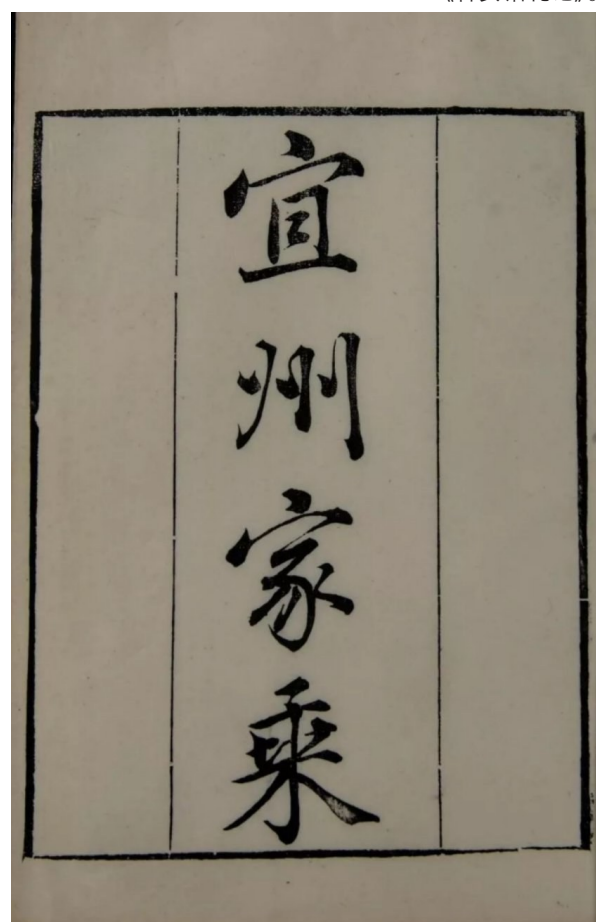 宜州家乘